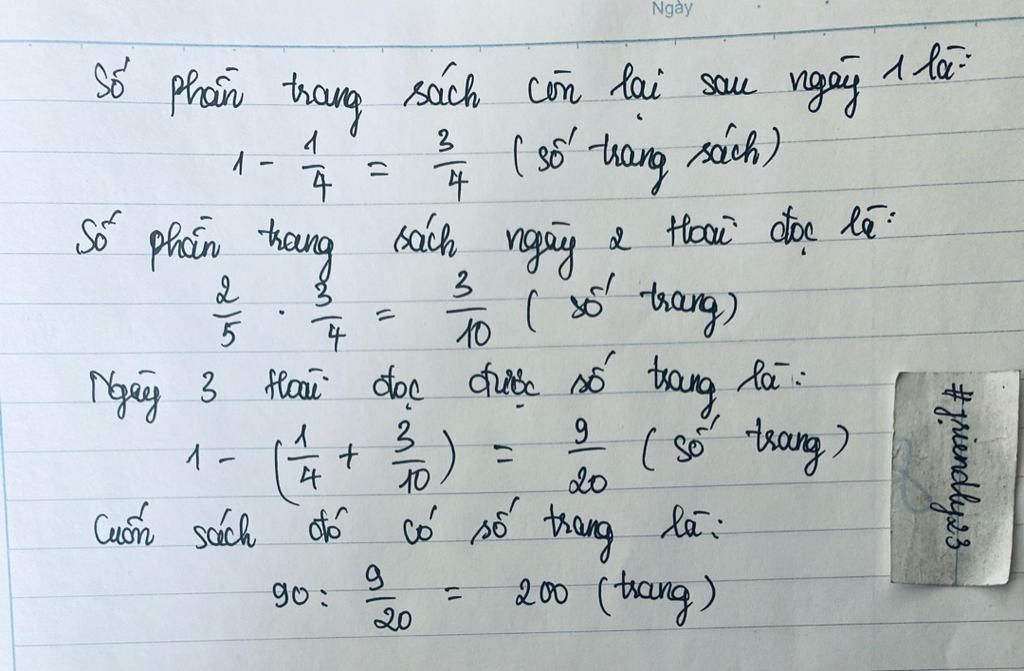 Ngày
Số phần trang sách còn lại sau ngày 1 là:
1 - 1/4 = 3/4 (số trang sách)
Số phần trang sách ngày 2 Hoa đọc là:
2/5 . 3/4 = 3/10 (số trang)
Ngày 3 Hoa đọc được số trang là:
1 - (1/4 + 3/10) = 9/20 (số trang)
Cuốn sách đó có số trang là:
90 : 9/20 = 200 (trang)
#friendly23